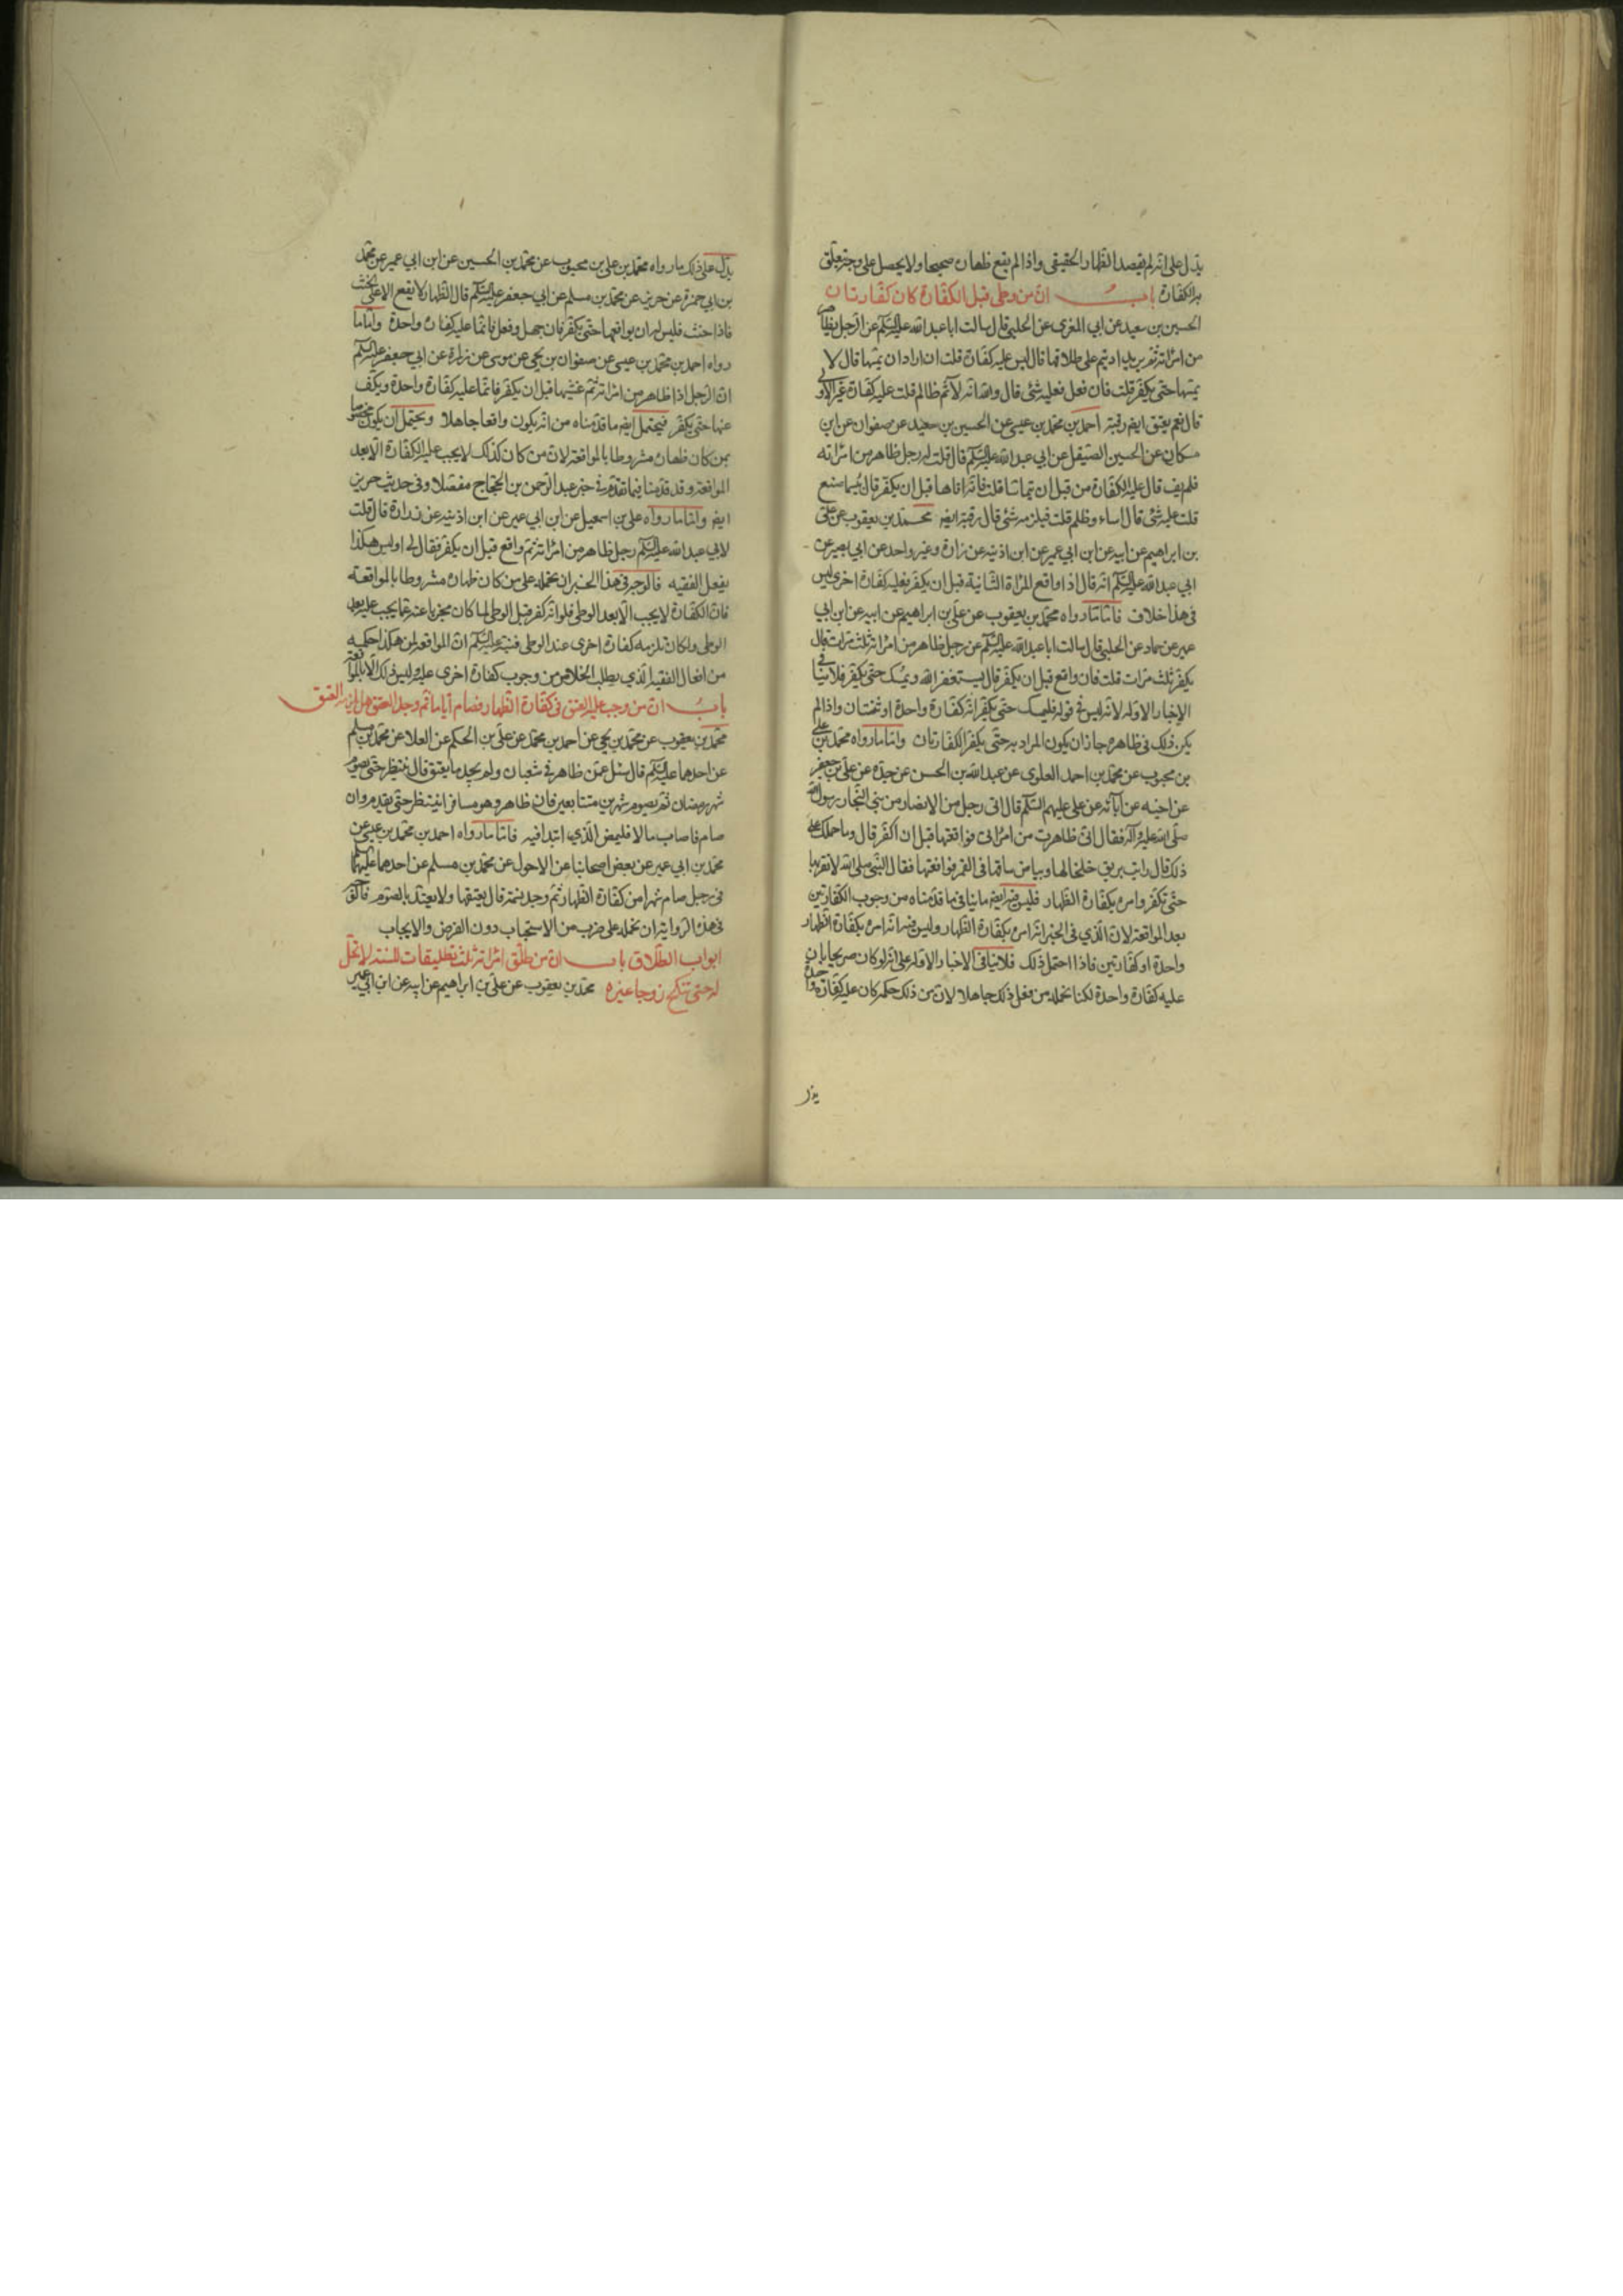 يدل على انه لم يقصد الظهار الحقيقى واذا لم يقع ظهاره صحيحا ولا يحصل على وجه يتعلق
به الكفارة باب ان من وطى قبل الكفارة كان كفارتان
الحسين بن سعيد عن ابي المغرى عن الحلبي قال سالت ابا عبد الله عليه السلم عن الرجل يظاهر
من امراته ثم يريد ان يتم على طلاقها قال ليس عليه كفارة قلت ان اراد ان يمسها قال لا
يمسها حتى يكفر قلت فان فعل فعليه شئ قال والله انه لآثم ظالم قلت عليه كفارة غير الاولى
قال نعم يعتق ايضا رقبة احمد بن محمد بن عيسى عن الحسين بن سعيد عن صفوان عن ابن
مسكان عن الحسين الصيقل عن ابي عبد الله عليه السلم قال قلت له رجل ظاهر من امراته
فلم يف قال عليه الكفارة من قبل ان يتماسا قلت فانه اتاها قبل ان يكفر قال بئسما صنع
قلت عليه شئ قال اساء وظلم قلت فيلزمه شئ قال رقبة ايضا محمد بن يعقوب عن على
بن ابراهيم عن ابيه عن ابن ابي عمير عن ابن اذينه عن زرارة وغير واحد عن ابي بصير عن
ابي عبد الله عليه السلم انه قال اذا واقع المرأة الثانية قبل ان يكفر فعليه كفارة اخرى ليس
فى هذا خلاف فاما ما رواه محمد بن يعقوب عن على بن ابراهيم عن ابيه عن ابن ابي
عمير عن حماد عن الحلبي قال سالت ابا عبد الله عليه السلم عن رجل ظاهر من امراته ثلث مرات قال
يكفر ثلث مرات قلت فان واقع قبل ان يكفر قال يستغفر الله ويمسك حتى يكفر فلا ينافى
الاخبار الاوله لانه ليس فى قوله فليمسك حتى يكفر انه كفارة واحدة او ثنتان واذا لم
يكن ذلك فى ظاهره جاز ان يكون المراد به حتى يكفر الكفارتان واما ما رواه محمد بن على
بن محبوب عن محمد بن احمد العلوى عن عبد الله بن الحسن عن جده عن على بن جعفر
عن اخيه عن آبائه عن على عليهم السلم قال اتى رجل من الانصار من بني النجار رسول الله
صلى الله عليه وآله فقال انى ظاهرت من امراتى فواقعتها قبل ان اكفر قال وما حملك على
ذلك قال رايت بريق خلخالها وبياض ساقها فى القمر فواقعتها فقال النبى صلى الله لا تقربها
حتى تكفر وامره بكفارة الظهار فليس فيه ايضا ما ينافى ما قدمناه من وجوب الكفارتين
بعد المواقعة لان الذي فى الخبر انه امره بكفارة الظهار وليس فيه انه امره بكفارة الظهار
واحدة او كفارتين فاذا احتمل ذلك فلا ينافى الاخبار الاوله على انه لو كان صريحا بان
عليه كفارة واحدة لكنا نحمله من فعل ذلك جاهلا لان من ذلك حكمه كان عليه كفارة واحدة
يدل
يدل على ذلك ما رواه محمد بن على بن محبوب عن محمد بن الحسين عن ابن ابي عمير عن محمد
بن ابي حمزة عن حريز عن محمد بن مسلم عن ابي جعفر عليه السلم قال الظهار لا يقع الا على الحنث
فاذا حنث فليس له ان يواقعها حتى يكفر فان جهل وفعل فانما عليه كفارة واحدة واما ما
رواه احمد بن محمد بن عيسى عن صفوان بن يحيى عن موسى عن زرارة عن ابي جعفر عليه السلم
ان الرجل اذا ظاهر من امراته ثم غشيها قبل ان يكفر فانما عليه كفارة واحدة ويكف
عنها حتى يكفر فيحتمل ايضا ما قدمناه من انه يكون واقعا جاهلا ويحتمل ان يكون مخصوصا
بمن كان ظهاره مشروطا بالمواقعة لان من كان كذلك لا يجب عليه الكفارة الا بعد
المواقعة وقد قدمنا فيما تقدم فى خبر عبد الرحمن بن الحجاج مفصلا وفى حديث حريز
ايضا واما ما رواه على بن اسمعيل عن ابن ابي عمير عن ابن اذينه عن زرارة قال قلت
لابي عبد الله عليه السلم رجل ظاهر من امراته ثم واقع قبل ان يكفر فقال لي اوليس هكذا
يفعل الفقيه فالوجه فى هذا الخبر ان نحمله على من كان ظهاره مشروطا بالمواقعة
فان الكفارة لا يجب الا بعد الوطى فلو انه كفر قبل الوطى لما كان مجزيا عنه عما يجب عليه بعد
الوطى ولكان تلزمه كفارة اخرى عند الوطى فنبه عليه السلم ان المواقعة لمن هكذا حكمه
من افعال الفقيه الذي يطلب الخلاص من وجوب كفارة اخرى عليه وليس ذلك الا بالمواقعة
باب ان من وجب عليه العتق فى كفارة الظهار فصام اياما ثم وجد العتق هل يلزمه العتق
محمد بن يعقوب عن محمد بن يحيى عن احمد بن محمد عن على بن الحكم عن العلا عن محمد بن مسلم
عن احدهما عليه السلم قال سئل عمن ظاهر فى شعبان ولم يجد ما يعتق قال ينتظر حتى يصوم
شهر رمضان ثم يصوم شهرين متتابعين فان ظاهر وهو مسافر انتظر حتى يقدم وان
صام فاصاب مالا فليمض الذي ابتدا فيه فاما ما رواه احمد بن محمد بن عيسى عن
محمد بن ابي عمير عن بعض اصحابنا عن الاحول عن محمد بن مسلم عن احدهما عليهما
فى رجل صام شهرا من كفارة الظهار ثم وجد نسمة قال يعتقها ولا يعتد بالصوم فالوجه
فى هذه الرواية ان نحمله على ضرب من الاستحباب دون الفرض والايجاب
ابواب الطلاق باب ان من طلق امراته ثلث تطليقات للسنة لا تحل
له حتى تنكح زوجا غيره محمد بن يعقوب عن على بن ابراهيم عن ابيه عن ابن ابي عمير